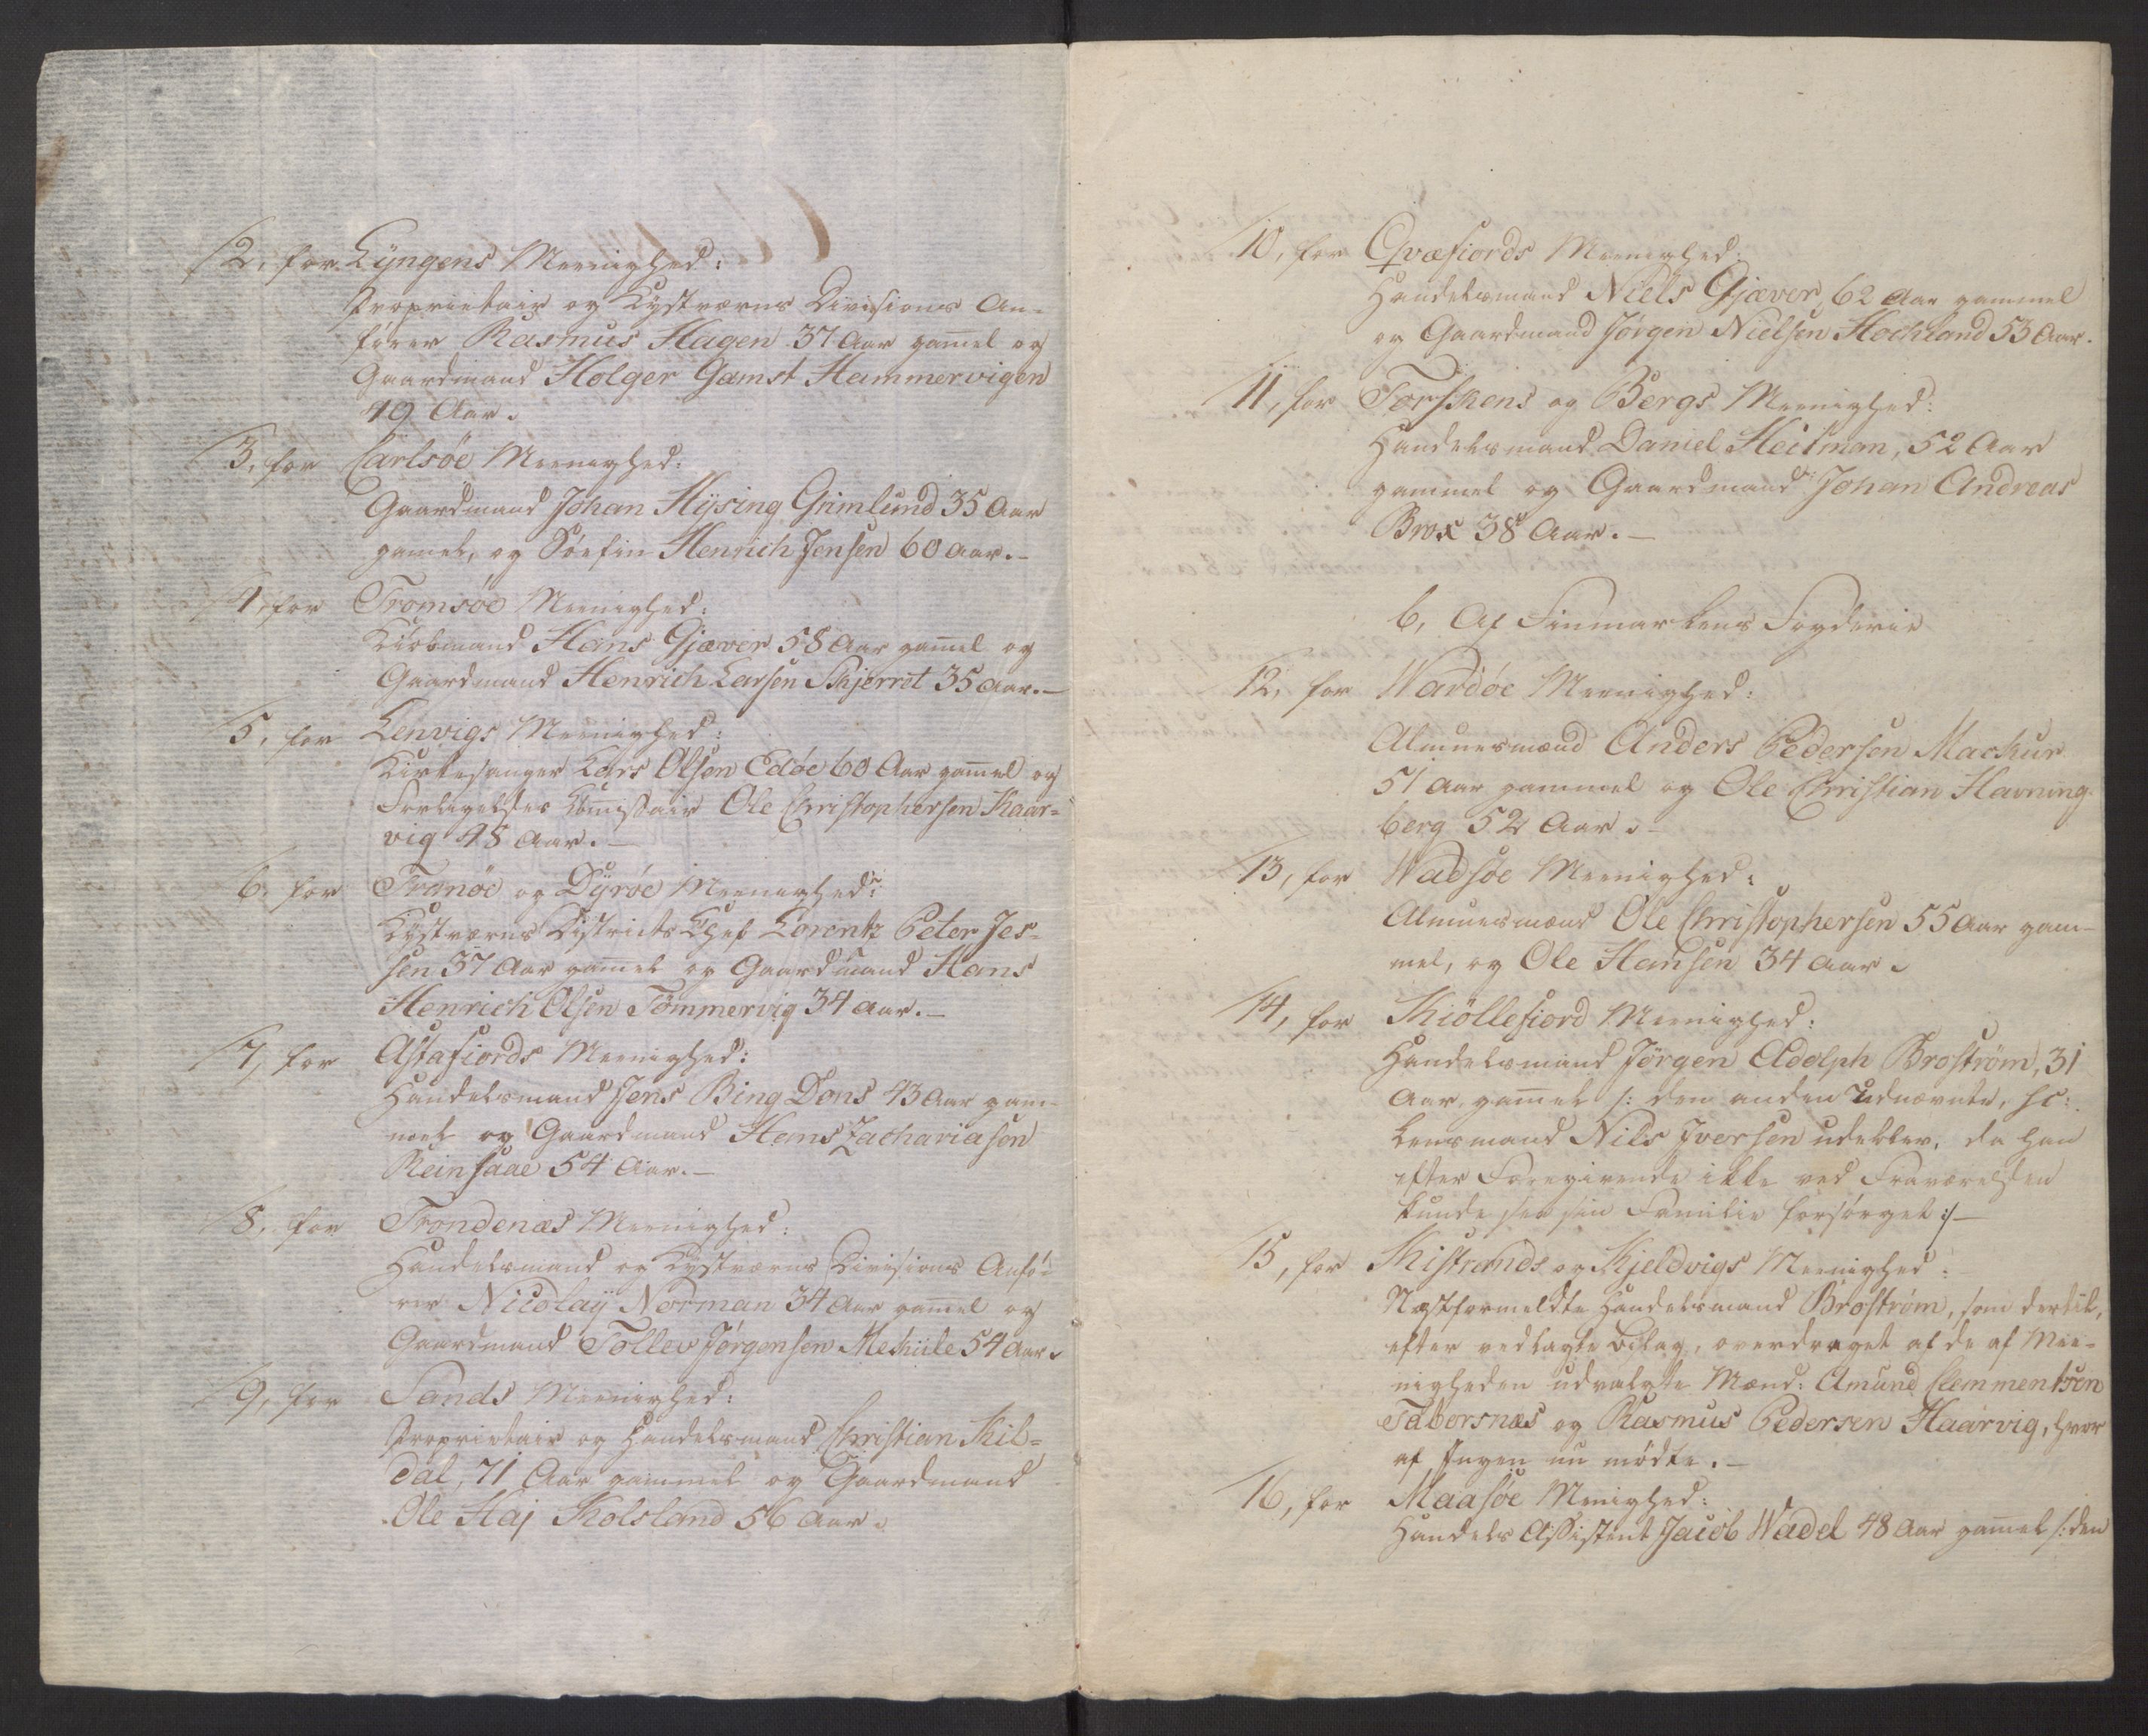 2, for Lyngens Meenighed:
Proprietair og Kystværns Divisions An-
fører Rasmus Hagen 37 Aar gam̄el og
Gaardmand Holger Gamst Hammervigen
49 Aar.
3, for Carlsöe Meenighed:
Gaardmand Johan Hysing Grimlund 35 Aar
gamel, og Søefin Henrich Jensen 60 Aar.-
4, for Tromsöe Meenighed:
Kiöbmand Hans Gjæver 58 Aar gam̄el og
Gaardmand Henrich Larsen Skjerret 35 Aar.-
5, for Lenvigs Meenighed:
Kirkesanger Lars Olsen Edöe 60 Aar gam̄el og
Forligelses Com̄issair Ole Christophersen Kaar-
vig 48 Aar.-
6, for Tranöe og Dyröe Meenighed:
Kystværns Districts Chef Lorentz Peter Jes-
sen 37 Aar gam̄el og Gaardmand Hans
Henrich Olsen Tömmervig 34 Aar.-
7, for Astafiords Meenighed:
Handelsmand Jens Bing Dons 43 Aar gam-
mel og Gaardmand Hans Zachariasen
Reinsaae 54 Aar.-
8, for Trondenæs Meenighed:
Handelsmand og Kystværns Divisions Anfö-
rer Nicolaÿ Norman 34 Aar gam̄el og
Gaardmand Tollev Jörgensen Mehuile 54 Aar.
9, for Sands Meenighed:
Proprietair og Handelsmand Christian Kil-
dal, 71 Aar gammel og Gaardmand
Ole Haj Kolsland 56 Aar.
10, for Qvæfiords Meenighed:
Handelsmand Niels Gjæver, 62 Aar gammel
og Gaardmand Jörgen Nielsen Hochland 53 Aar.
11, for Torskens og Bergs Meenighed:
Handelsmand Daniel Heitman, 52 Aar
gammel og Gaardmand Johan Andreas
Brox 38 Aar.-
b, Af Finmarkens Fogderie
12, for Wardöe Meenighed:
Almuesmænd Anders Pedersen Mackur
51 Aar gammel og Ole Christian Havning-
berg 52 Aar.-
13, for Wadsöe Meenighed:
Almuesmænd Ole Christophersen 55 Aar gam-
mel, og Ole Hansen 34 Aar.
14, for Kiöllefiord Meenighed:
Handelsmand Jörgen Adolph Broström, 31
Aar gam̄el /: den anden Udnævnte, sc:
Lensmand Nils Iversen udebler, da han
efter Foregivende ikke ved Fraværelsen
kunde see sin Familie forsörget :/-
15, for Kistrands og Kjeldvigs Meenighed:
Næstformeldte Handelsmand Broström, som dertil,
efter vedlagte Bilag, overdraget af de af Mee-
nigheden udvalgte Mænd: Amund Clemmentsen
Taborsnæs og Rasmus Pedersen Haarvig, hvor
af Ingen nu mödte.-
16, for Maasöe Menighed:
Handels Assistent Jacob Wadel 48 Aar gam̄el /: den